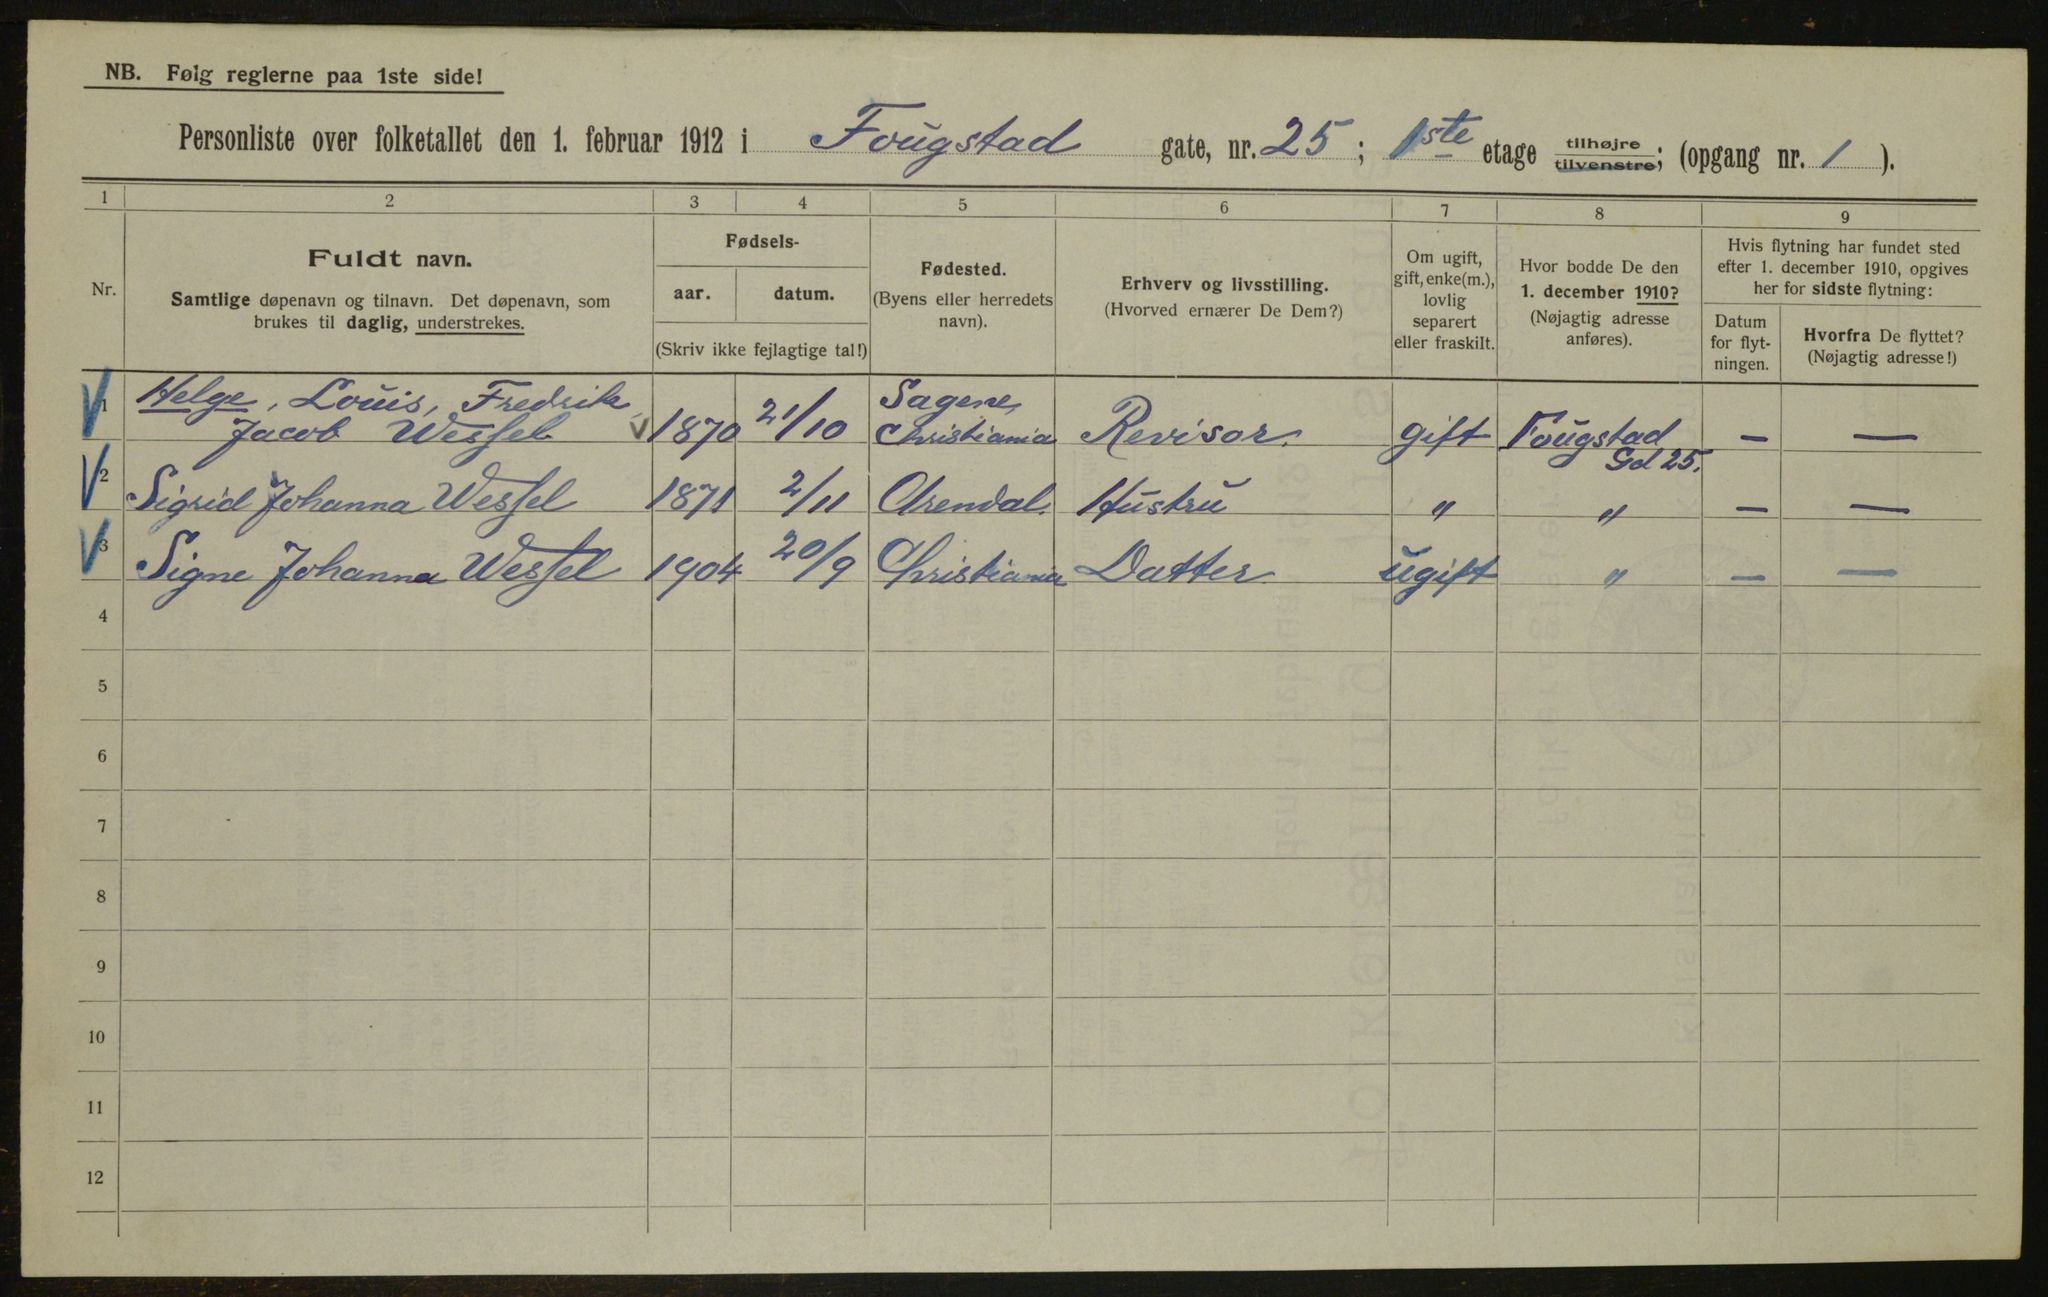 NB. Følg reglerne paa 1ste side!
Personliste over folketallet den 1. februar 1912 i Fougstad gate, nr. 25; 1ste etage tilhøjre tilvenstre; (opgang nr. 1).
1 2 3 4 5 6 7 8 9
Nr.
Fuldt navn.
Samtlige døpenavn og tilnavn. Det døpenavn, som
brukes til daglig, understrekes.
Fødsels-
aar. datum.
(Skriv ikke fejlagtige tal!)
Fødested.
(Byens eller herredets
navn).
Erhverv og livsstilling.
(Hvorved ernærer De Dem?)
Om ugift,
gift, enke(m.),
lovlig
separert
eller fraskilt.
Hvor bodde De den
1. december 1910?
(Nøjagtig adresse
anføres).
Hvis flytning har fundet sted
efter 1. december 1910, opgives
her for sidste flytning:
Datum
for flyt-
ningen.
Hvorfra De flyttet?
(Nøjagtig adresse!)
1 Helge, Louis, Fredrik, Sagene,
Jacob Wessel 1870 21/10 Christiania Revisor. gift Fougstad — —
Gd 25.
2 Sigrid Johanna Wessel 1871 2/11 Arendal. Hustru " " — —
3 Signe Johanna Wessel 1904 20/9 Christiania Datter ugift " — —
4
5
6
7
8
9
10
11
12